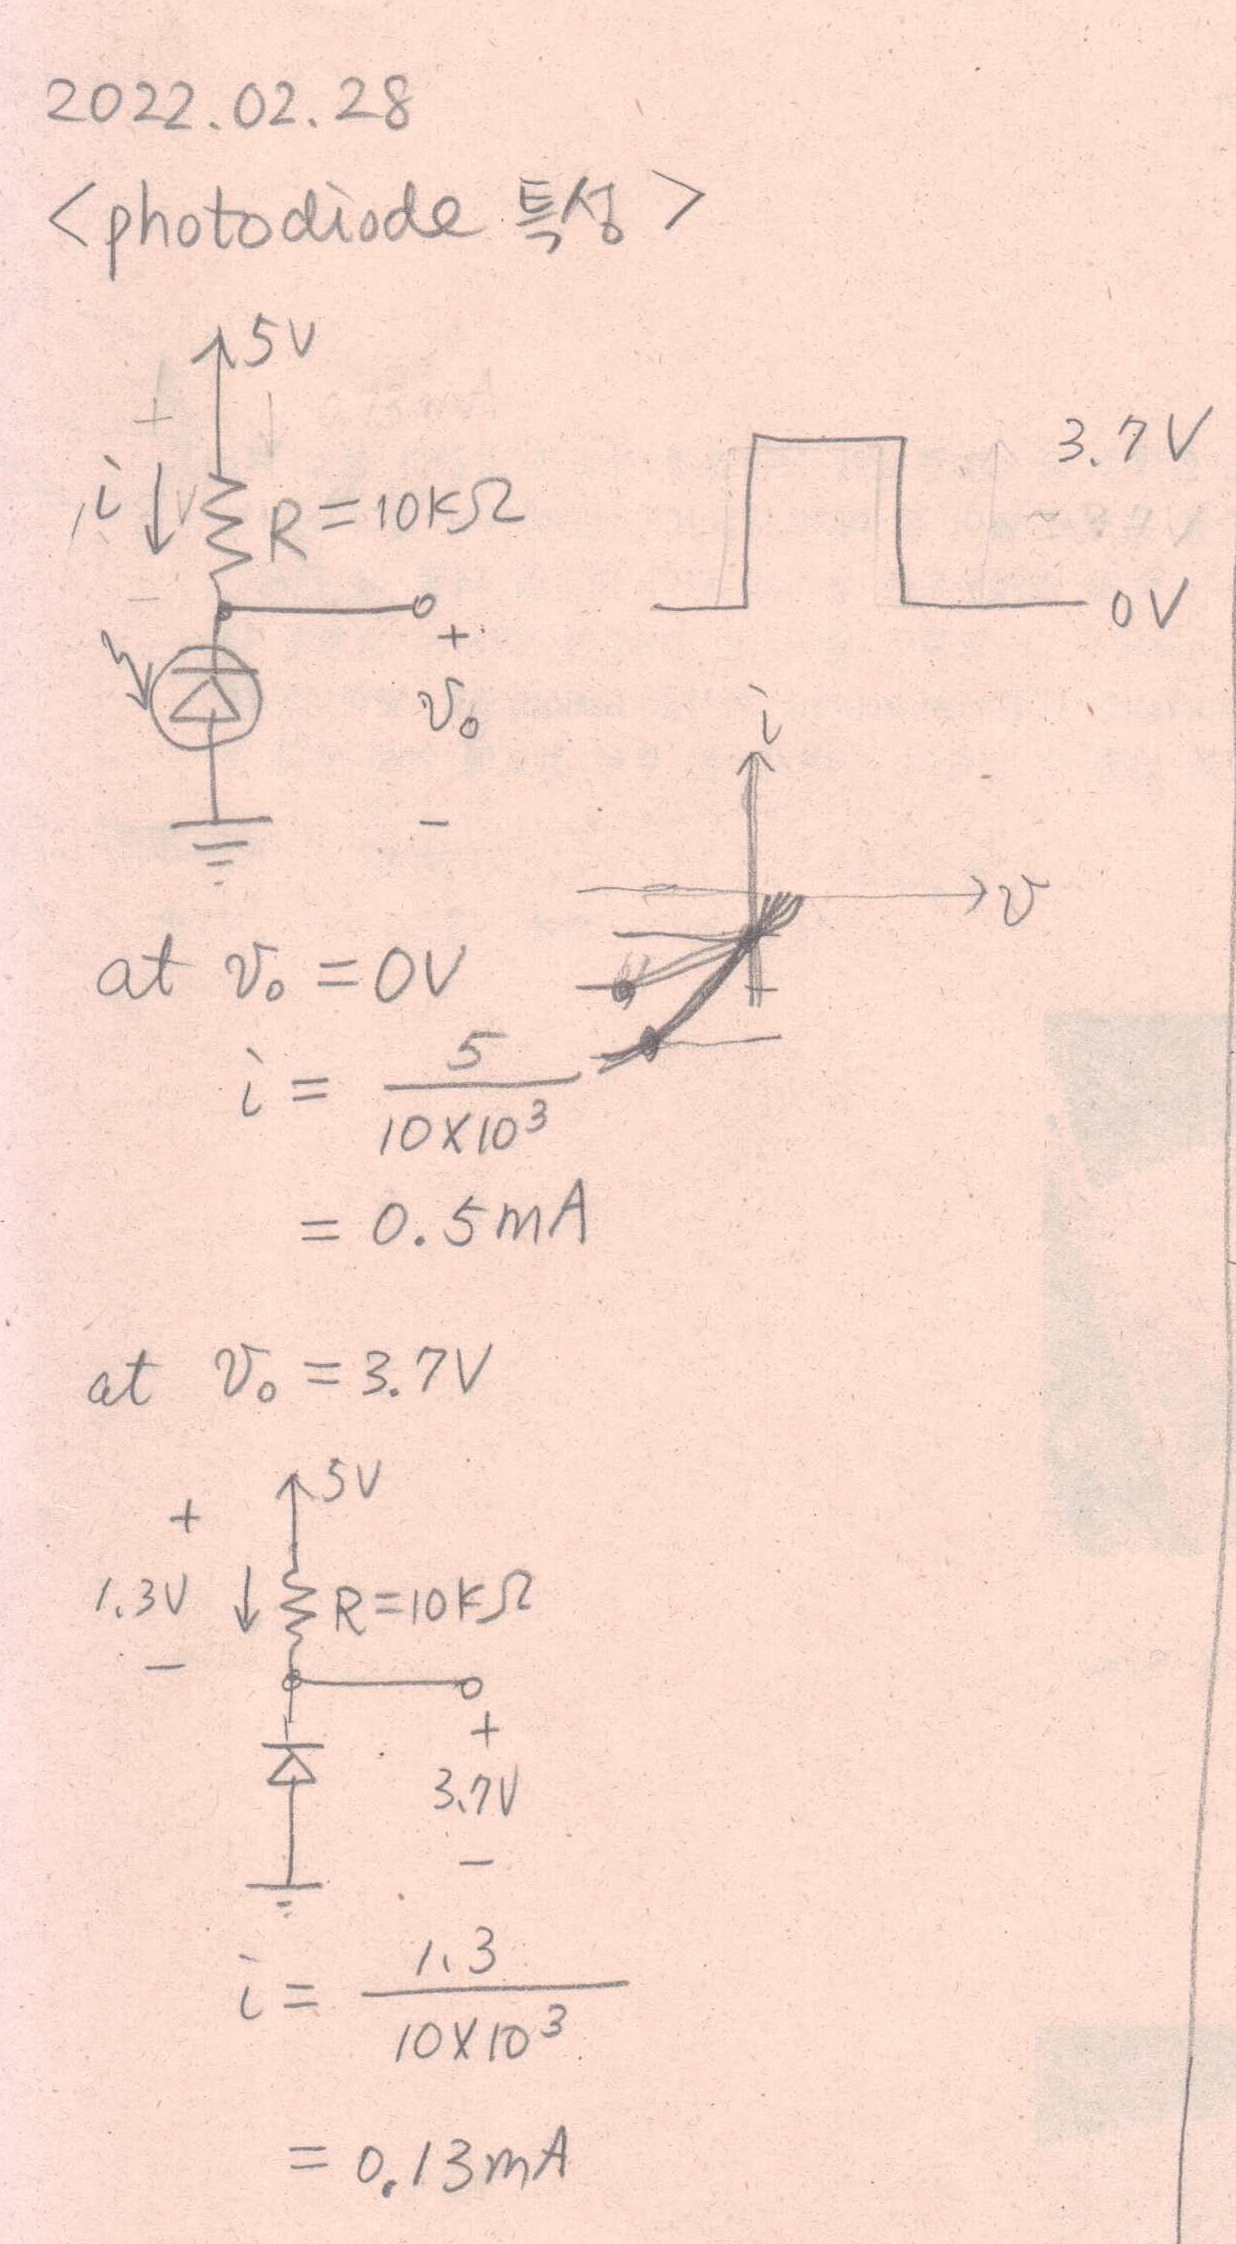 2022.02.28
<photodiode 특성>
5V
+
i
R=10kΩ
-
+
v₀
-
3.7V
0V
i
v
at v₀=0V
i = 5/10×10³
= 0.5mA
at v₀=3.7V
5V
+
1.3V
R=10kΩ
-
+
3.7V
-
i = 1.3/10×10³
= 0.13mA